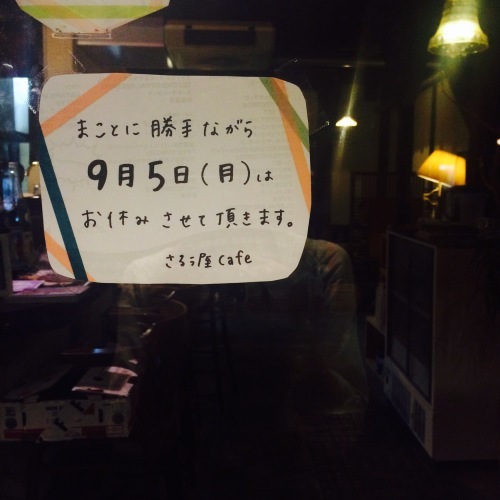 まことに勝手ながら
9月5日(月)は
お休みさせて頂きます。
さるう屋 cafe